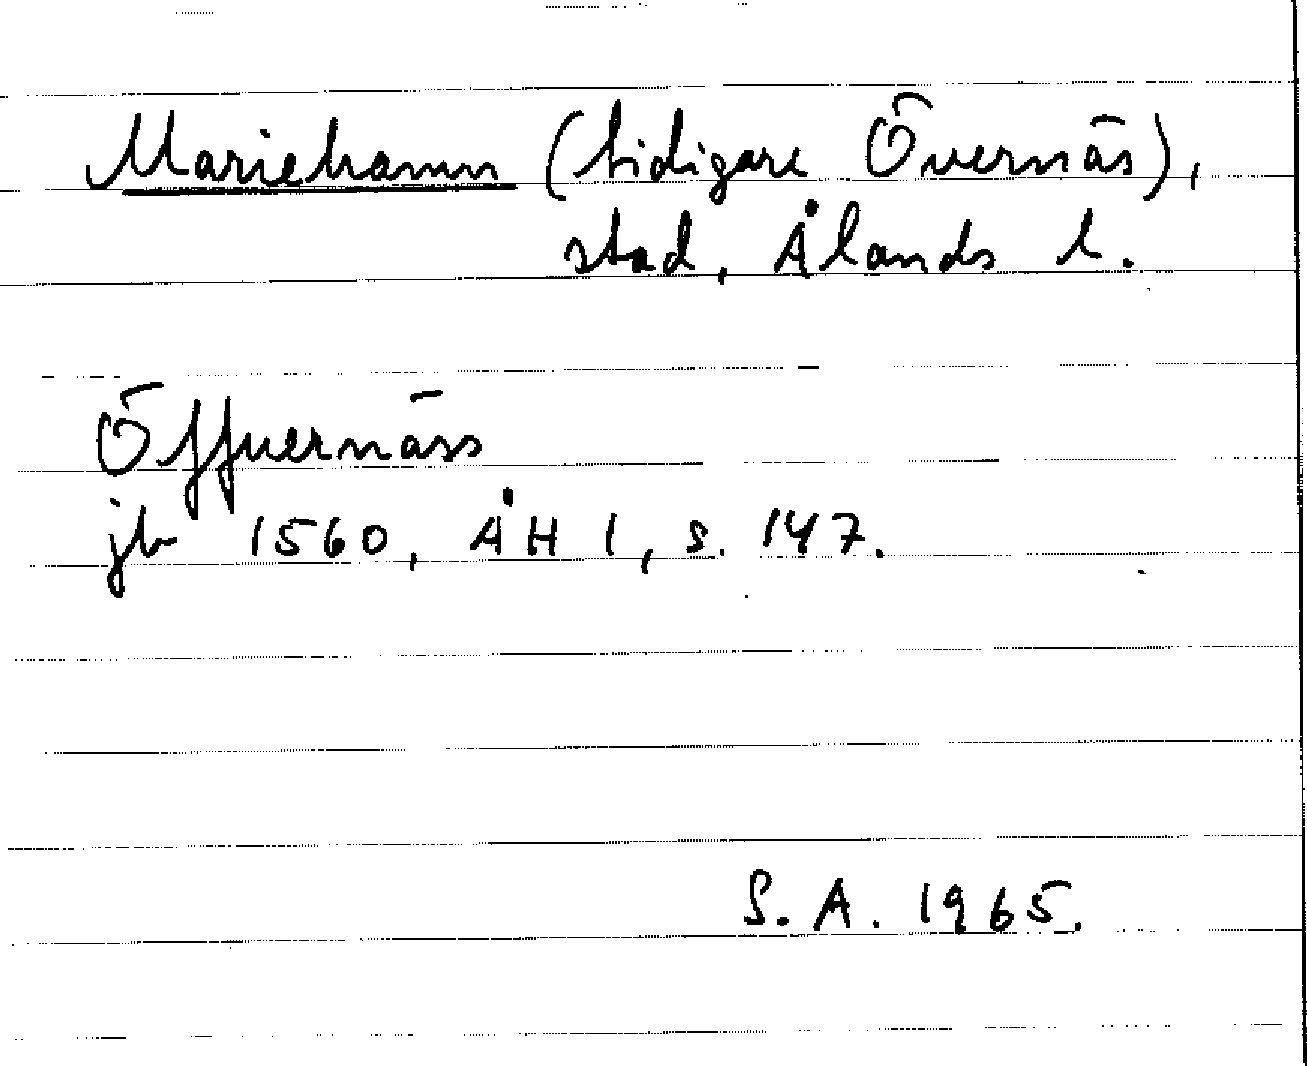 Mariehamn (tidigare Övernäs),
stad, Ålands l.
Öffuernäss
jb 1560, ÅH 1, s. 147.
S. A. 1965.